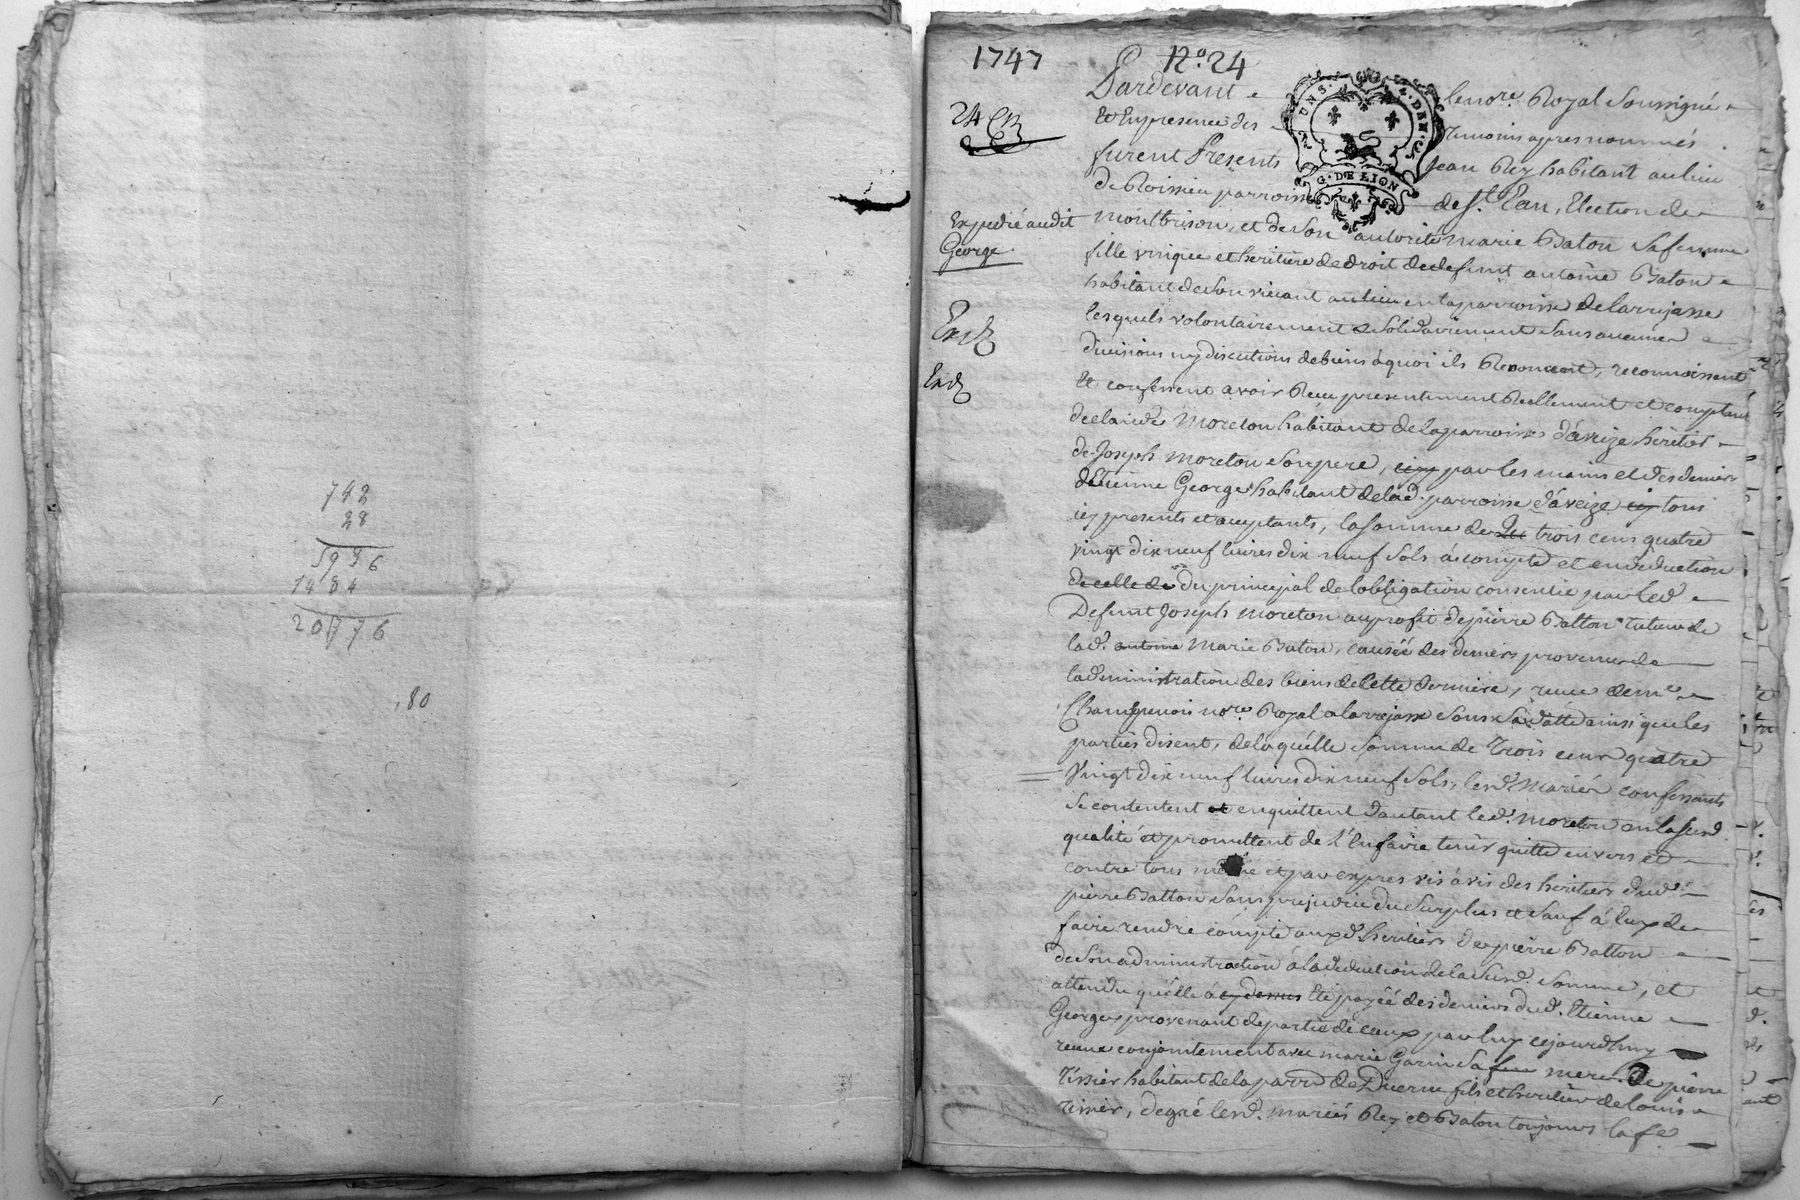 742
28
5936
1484
20776
,80
1747
No. 24
24 CB
Expedié audit
George
Exdz
Exdz
UNS. 4. DEN.
G. DE LION
Pardevant lenore. Royal Soussigné
Et Enpresence des Temoins apres nommés
furent Presents Jean Rey habitant au lieu
de Roissieu parroisse de St. Ean, Election de
montbrison, et de Son autorité marie Baton Safemme
fille unique et heritiere de droit de defunt antoine Baton
habitant deSon vivant au lieu en la parroisse de larrajasse
lesquels volontairement et Solidairement Sans aucunes
divisions ny discutions de biens à quoi ils Renoncent, reconnoissent
Et confessent avoir Receu presentement Reellement et comptant
de claude Moreton habitant de la parroisse d'aveize heritier
de Joseph moreton Son pere, icy par les mains et des deniers
d'Etienne George habitant de lad. parroisse d'aveize icy tous
icy presents et acceptants, la Somme de trois cens quatre
vingt dix neuf livres dix neuf Sols à compte et en deduction
de celle de du principal de lobligation consentie par led.
Defunt Joseph moreton au profit de pierre Batton tuteur de
lad. antoine Marie Baton, causée des deniers provenus de
ladministration des biens de Cette derniere, receue de me.
Champenois nore. Royal a larrajasse Sous Sa datte ainsi que les
parties disent, de laquelle Somme de Trois cens quatre
Vingt dix neuf livres dix neuf Sols, lesd. Mariés confessants
Se contentent et en quittent d'autant led. Moreton en la Susd.
qualité et promettent de l'En faire tenir quitte envers et
contre tous même et par expres vis à vis des heritiers dud.
pierre Batton Sans prejudice du Surplus et Sauf à luy de
faire rendre compte aux d. heritiers de pierre Batton
de Son administration à la deduction de la Susd. Somme, et
attendu qu'elle à cy dessus Eté payée des deniers dud. Etienne
George provenant de partie de ceux par luy cejourd'huy
receus conjointement avec marie Garin Sa mere. De pierre
Tissier habitant de la parro de Duerne fils et heritier de louis
Tissier, de gré lesd. mariés Rey et Baton toujours la fe